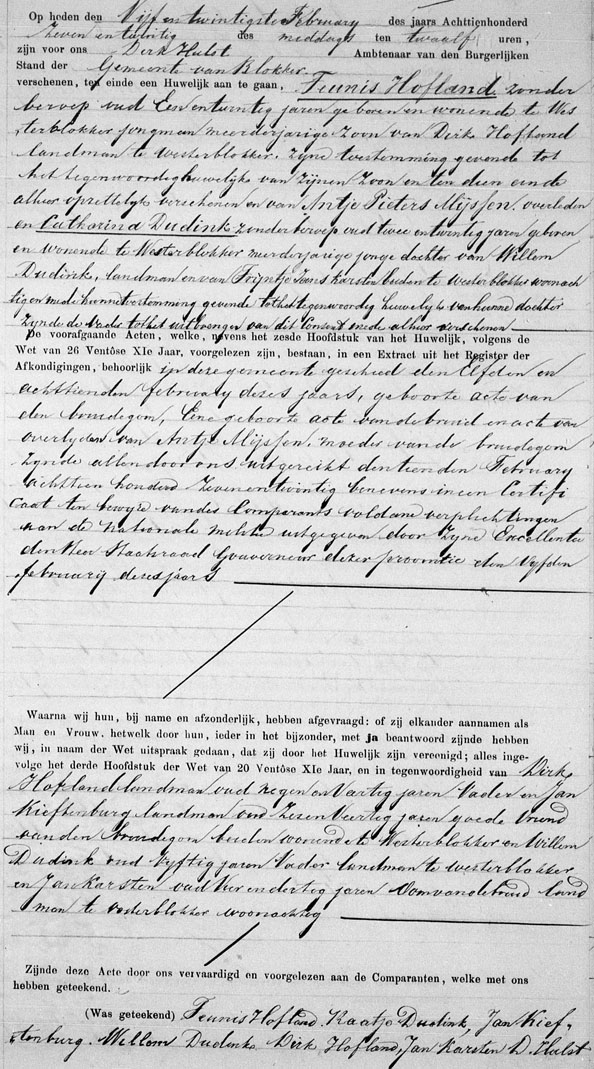 Op heden den Vijf en twintigste February des jaars Achttienhonderd
Zeven en twintig des middags ten twaalf uren,
zijn voor ons Dirk Hulst Ambtenaar van den Burgerlijken
Stand der Gemeente van Blokker
verschenen, ten einde een Huwelijk aan te gaan. Teunis Hofland zonder
beroep oud Een en twintig jaren geboren en wonende te Wes
terblokker jongman meerderjarige Zoon van Dirk Hofland
landman te Westerblokker. Zijne toestemming gevende tot
het tegenwoordig huwelijk van Zijnen Zoon en ten dien einde
alhier oprettelijk verschenen en van Antje Pieters Mijssen overleden
en Catharina Dudink zonder beroep oud twee en twintig jaren geboren
en wonende te Westerblokker meerderjarige jonge dochter van Willem
Dudink, landman en van Trijntje Jans Karsten beiden te Westerblokker woonach
tig en mede hunne toestemming gevende tot het tegenwoordig huwelijk van hunne dochter
Zijnde de Vader tot het uitbrengen van dit Consent mede alhier verschenen
De voorafgaande Acten, welke, novens het zesde Hoofdstuk van het Huwelijk, volgens de
Wet van 26 Ventôse XIe Jaar, voorgelezen zijn, bestaan, in een Extract uit het Register der
Afkondigingen, behoorlijk in deze gemeente geschied den Elfden en
achttienden february deses jaars, geboorte acte van
den bruidegom, Eene geboorte acte van de bruid en acte van
overlyden van Antje Mijssen, moeder van de bruidegom
Zynde allen door ons uitgereikt den tienden February
achttien honderd Zeven en twintig benevens in een Certifi
caat ten bewyze van des Comparants voldane verplichtingen
aan de Nationale militie uitgegeven door Zijne Excellentie
den Heer Staatsraad Gouverneur dezer provintie den Vyfden
februarij deses jaars
Waarna wij hun, bij name en afzonderlijk, hebben afgevraagd: of zij elkander aannamen als
Man en Vrouw, hetwelk door hun, ieder in het bijzonder, met ja beantwoord zijnde hebben
wij, in naam der Wet uitspraak gedaan, dat zij door het Huwelijk zijn vereenigd; alles inge-
volge het derde Hoofdstuk der Wet van 20 Ventôse XIe Jaar, en in tegenwoordigheid van Dirk
Hofland landman oud negen en Vartig jaren Vader en Jan
Kieftenburg landman oud Zesen Veertig jaren goede Vriend
van den bruidegom beiden wonend te Westerblokker en Willem
Dudink oud Vyftig jaren Vader landman te Westerblokker
en Jan Karsten oud Vier en dertig jaren Oom van de bruid land
man te Westerblokker woonachtig
Zijnde deze Acte door ons vervaardigd en voorgelezen aan de Comparanten, welke met ons
hebben geteekend.
(Was geteekend) Teunis Hofland. Kaatje Dudink, Jan Kief-
tenburg. Willem Dudink Dirk Hofland, Jan Karsten D. Hulst